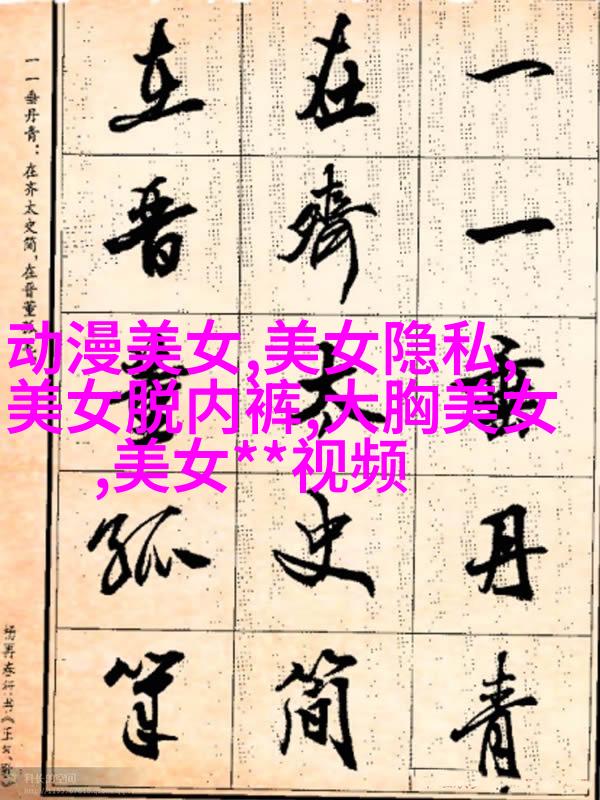 一一垂丹青
在齐太史简
在晋董狐笔
一一垂丹青：在齐太史简，在晋董狐
动漫美女,美女隐私,
美女脱内裤,大胸美女
,美女**视频
科长的空间